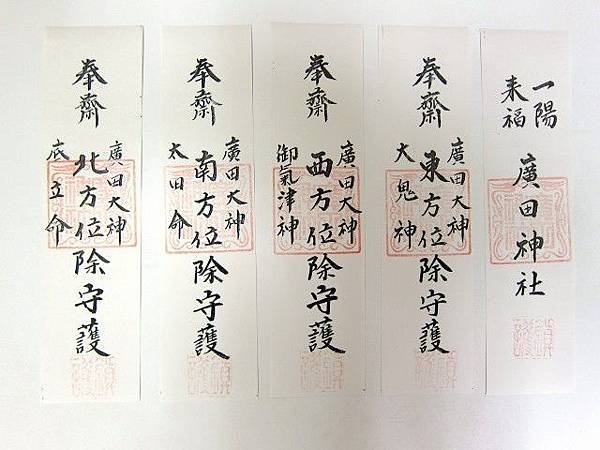 一陽
来福
廣田神社
奉齋
廣田大神
東方位除守護
大鬼神
奉齋
廣田大神
西方位除守護
御氣津神
奉齋
廣田大神
南方位除守護
太田命
奉齋
廣田大神
北方位除守護
底立命